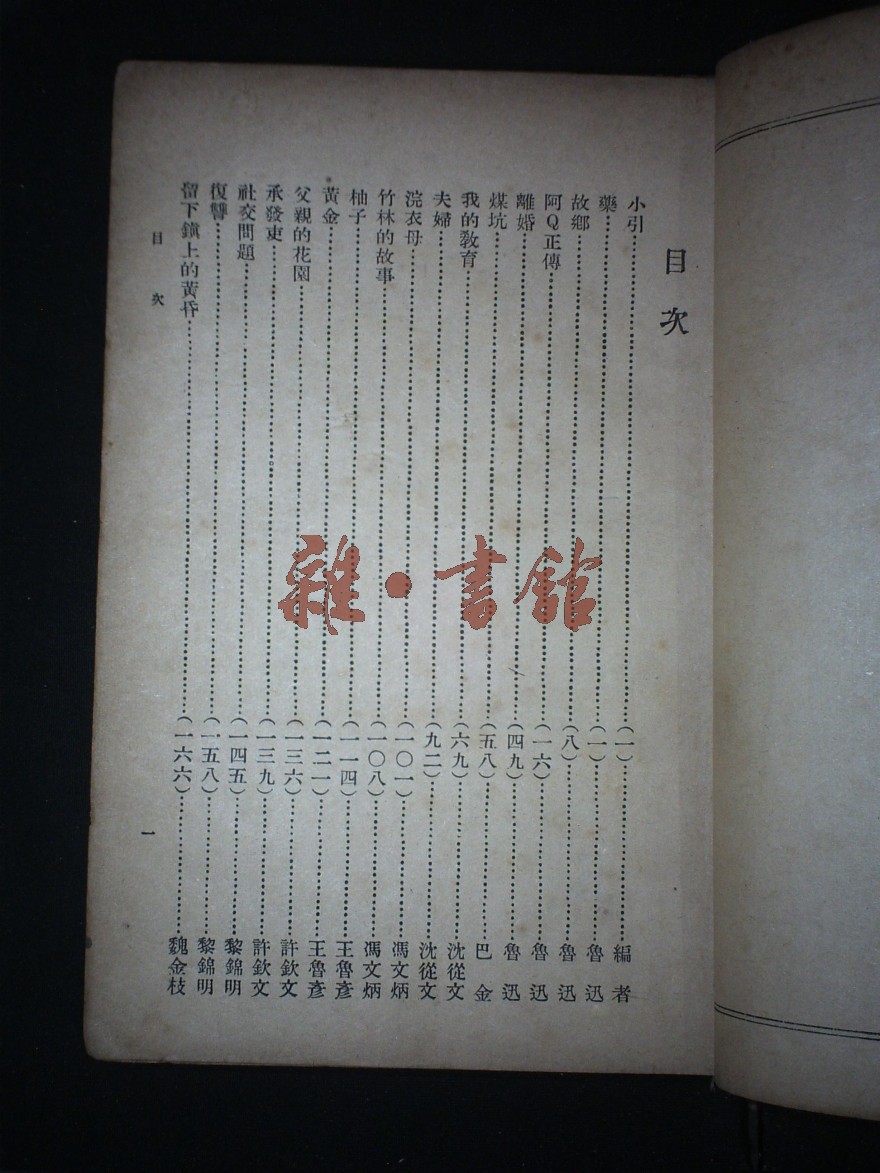 目次
小引(一)編者
藥(一)魯迅
故鄉(八)魯迅
阿Q正傳(一六)魯迅
離婚(四九)魯迅
煤坑(五八)巴金
我的教育(六九)沈從文
夫婦(九二)沈從文
浣衣母(一〇一)馮文炳
竹林的故事(一〇八)馮文炳
柚子(一一四)王魯彥
黃金(一二一)王魯彥
父親的花園(一三六)許欽文
承發吏(一三九)許欽文
社交問題(一四五)黎錦明
復讐(一五八)黎錦明
留下鎮上的黃昏(一六六)魏金枝
目次
一
雜·書館